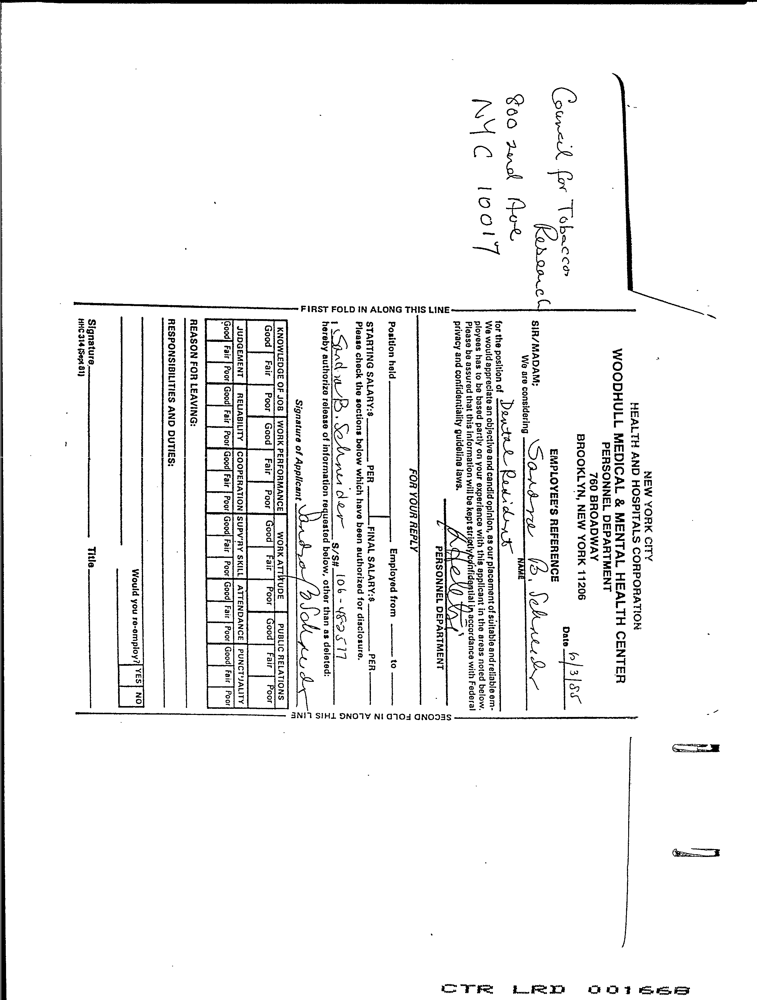 Council for Tobacco
Research
800 2nd Ave
NYC 10017
FIRST FOLD IN ALONG THIS LINE
NEW YORK CITY
HEALTH AND HOSPITALS CORPORATION
WOODHULL MEDICAL & MENTAL HEALTH CENTER
PERSONNEL DEPARTMENT
760 BROADWAY
BROOKLYN, NEW YORK 11206
Date 6/3/85
EMPLOYEE'S REFERENCE
SIR/MADAM:
We are considering Sandra B. Schneider
NAME
for the position of Dental Resident
We would appreciate an objective and candid opinion, as our placement of suitable and reliable em-
ployees has to be based partly on your experience with this applicant in the areas noted below.
Please be assured that this information will be kept strictly confidential in accordance with Federal
privacy and confidentiality guideline laws.
PERSONNEL DEPARTMENT
FOR YOUR REPLY
Position held Employed from to
STARTING SALARY:$ PER FINAL SALARY:$ PER
Please check the sections below which have been authorized for disclosure.
I Sandra B. Schneider S/S# 106-482577
hereby authorize release of information requested below, other than as deleted:
Signature of Applicant Sandra B Schneider
KNOWLEDGE OF JOB WORK PERFORMANCE WORK ATTITUDE PUBLIC RELATIONS
Good Fair Poor Good Fair Poor Good Fair Poor Good Fair Poor
JUDGEMENT RELIABILITY COOPERATION SUPV'RY SKILL ATTENDANCE PUNCTUALITY
Good Fair Poor Good Fair Poor Good Fair Poor Good Fair Poor Good Fair Poor Good Fair Poor
REASON FOR LEAVING:
RESPONSIBILITIES AND DUTIES:
Would you re-employ? YES NO
Signature Title
HHC 314 (Sept 81)
SECOND FOLD IN ALONG THIS LINE
CTR LRD 001668